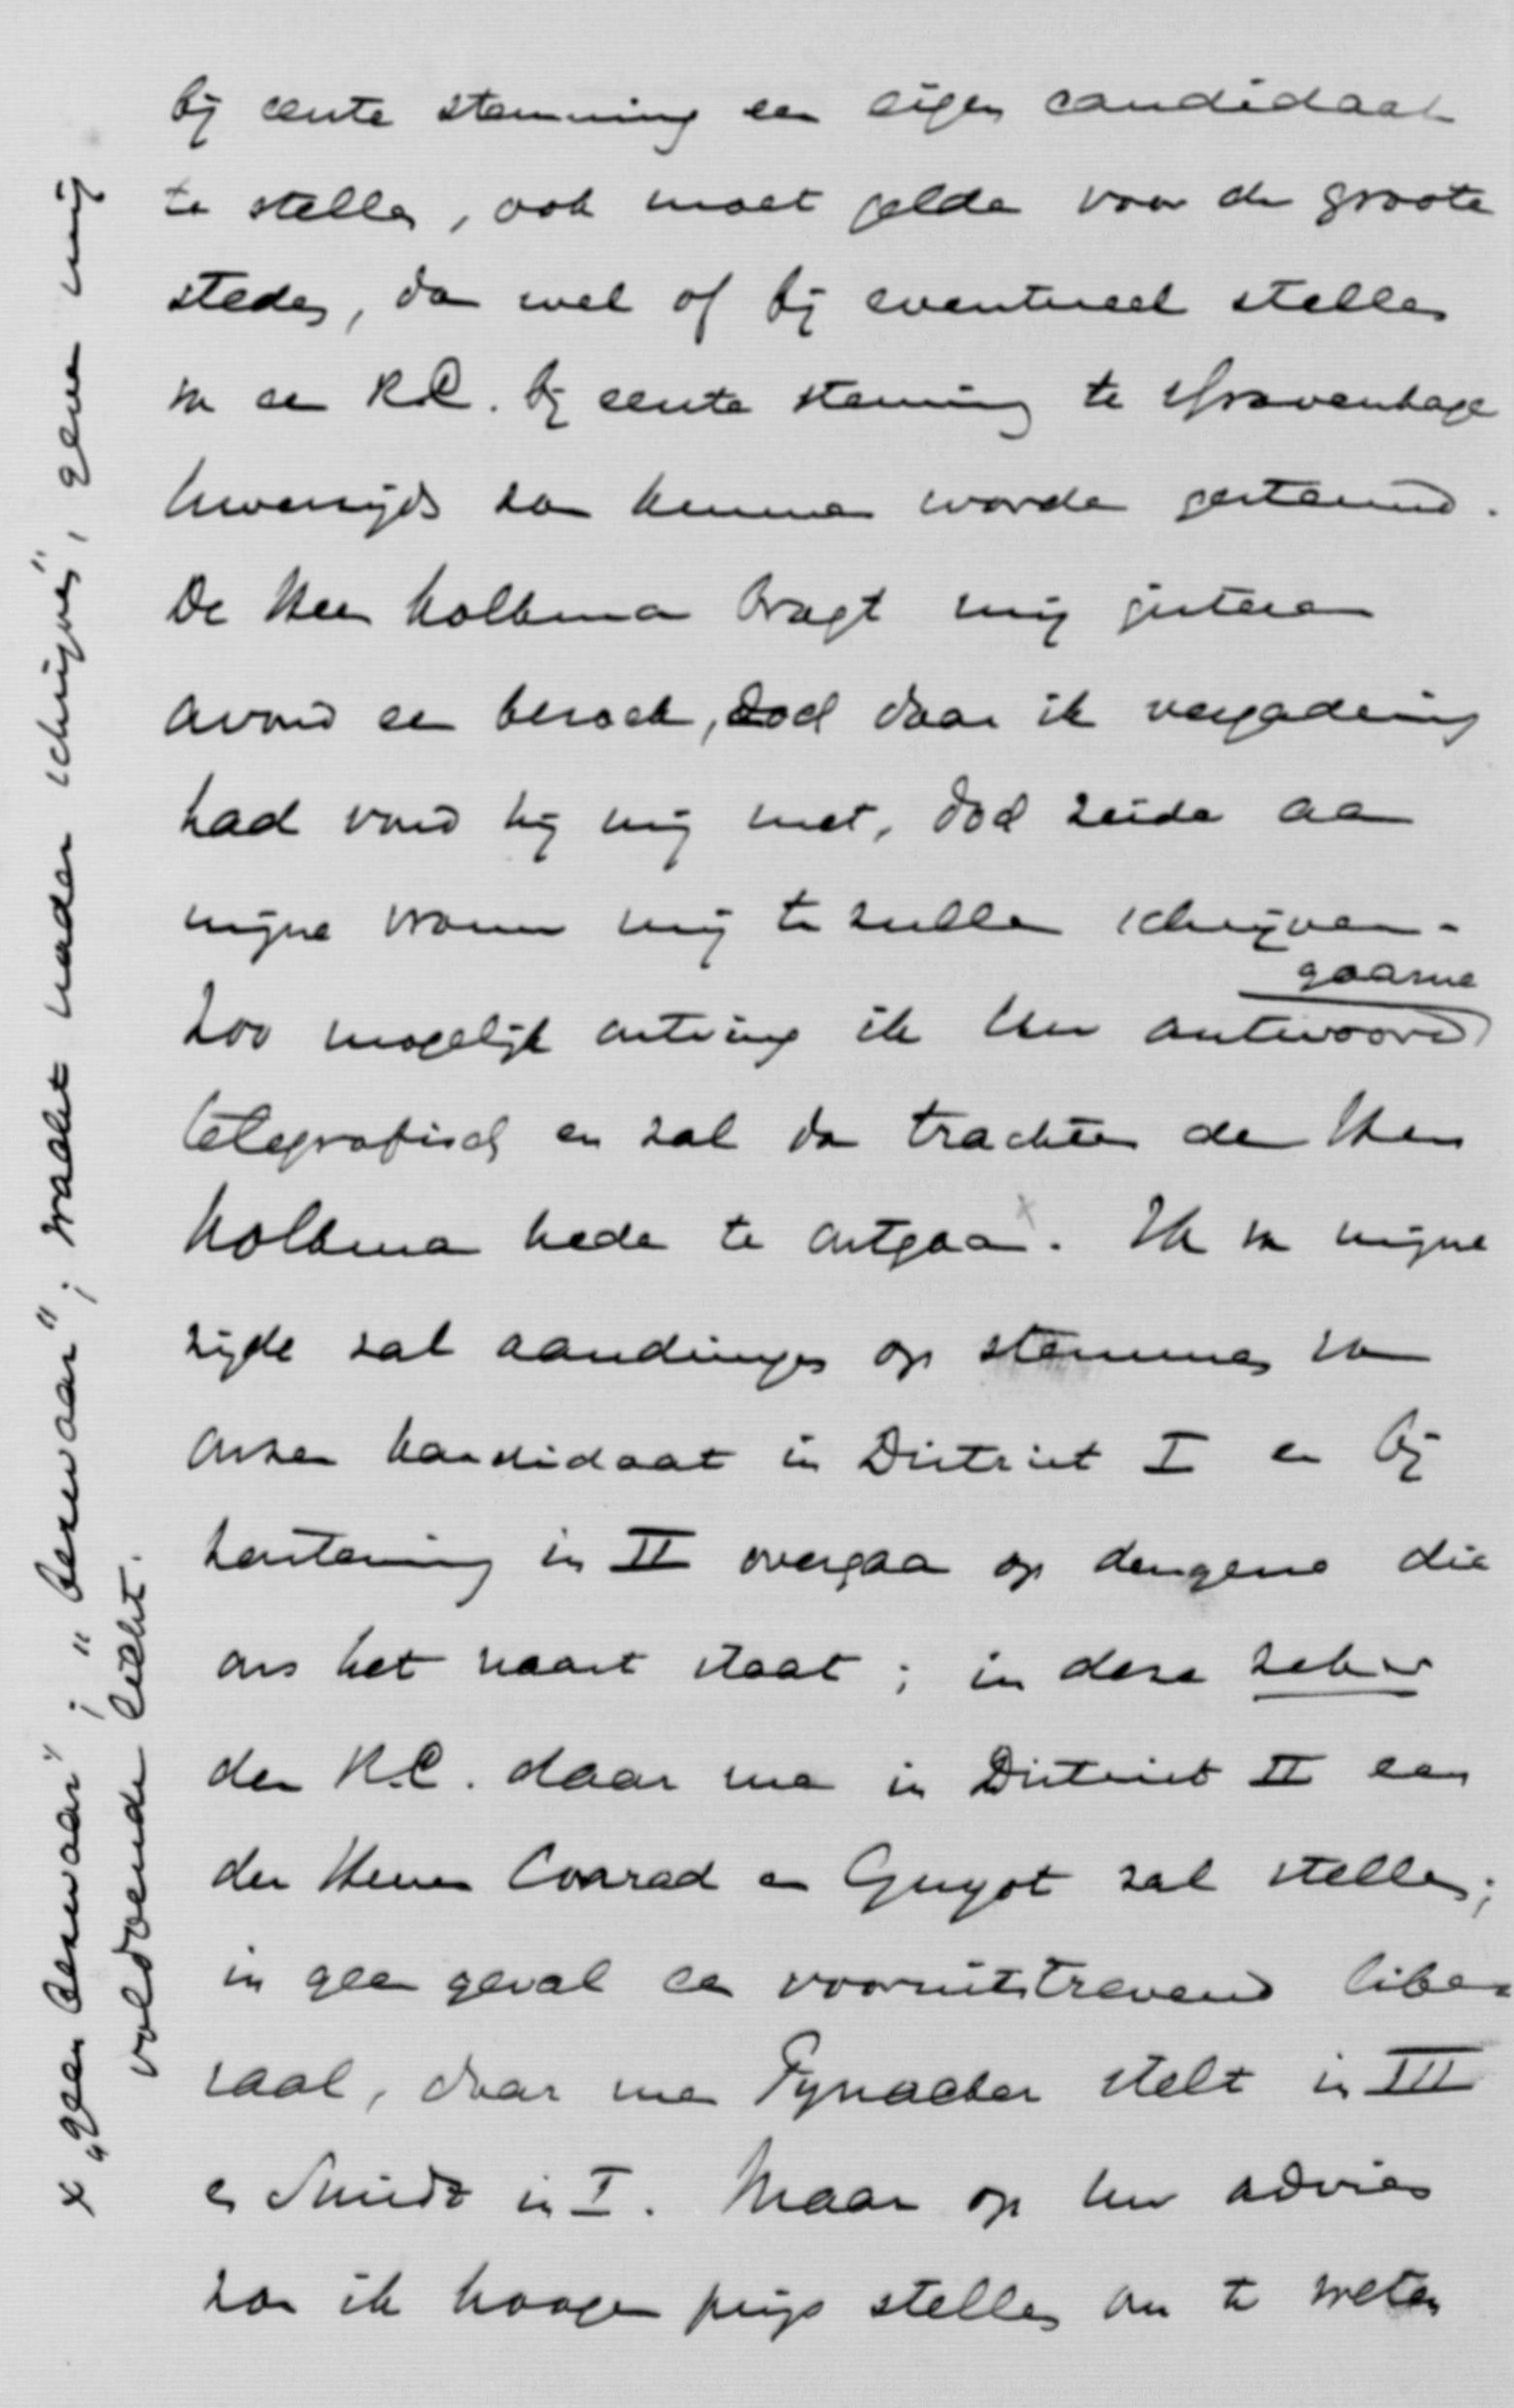 bij eerste stemming een eigen candidaat
te stellen, ook moet gelden voor de groote
steden, dan wel of bij eventueel stellen
van een R.C. bij eerste stemming te 's Gravenhage
Uwerzijds zou kunnen worden gesteund.
De Heer Kolkman bragt mij gisteren
avond een bezoek, doch daar ik vergadering
had vond hij mij niet, doch zeide aan
mijne vrouw mij te zullen schrijven.
Zoo mogelijk ontving ik Uw antwoord gaarne
telegrafisch en zal dan trachten den Heer
Kolkman heden te antgaan x. Ik van mijne
zijde zal aandringen op stemmen van
onzen kandidaat in District I en bij
herstemming in II overgaan op dengene die
ons het naast staat; in deze zeker
den R.C. daar men in District II een
der Heeren Conrad en Guyot zal stellen;
in geen geval een vooruitstrevend libe-
raal, daar men Pynacker stelt in III
en Smidt in I. Maar op Uw advies
zou ik hoogen prijs stellen om te weten
x "geen bezwaar"; "bezwaar"; wacht nader schrijven", geven mij
voldoende licht.